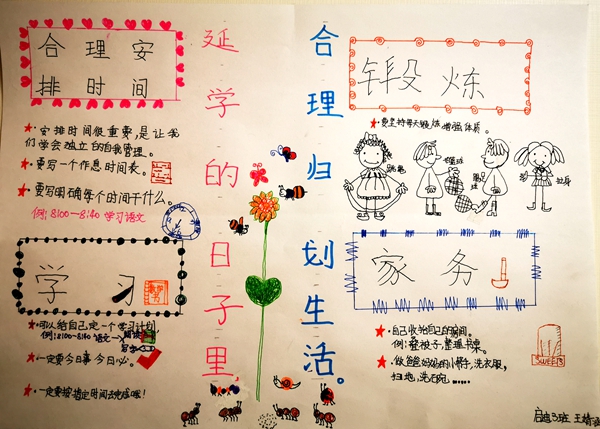 延学的日子里，
合理归划生活。
合理安
排时间
★·安排时间很重要，是让我
们学会独立的自我管理。
★·要写一个作息时间表。
★·要写明确每个时间干什么。
例：8:00-8:40 学习语文
学习
★·可以给自己定一个学习计划，
例：8:00-8:40 语文→阅读
写字
★·一定要今日事今日必。
★·一定要按指定时间去完成哦！
锻炼
★·要坚持每天锻炼增强体质。
跳绳
家务
★·自己收拾自己的房间。
例：叠被子，整理书桌。
★·做爸爸妈妈的小帮手，洗衣服，
扫地，洗碗……
SWEETS